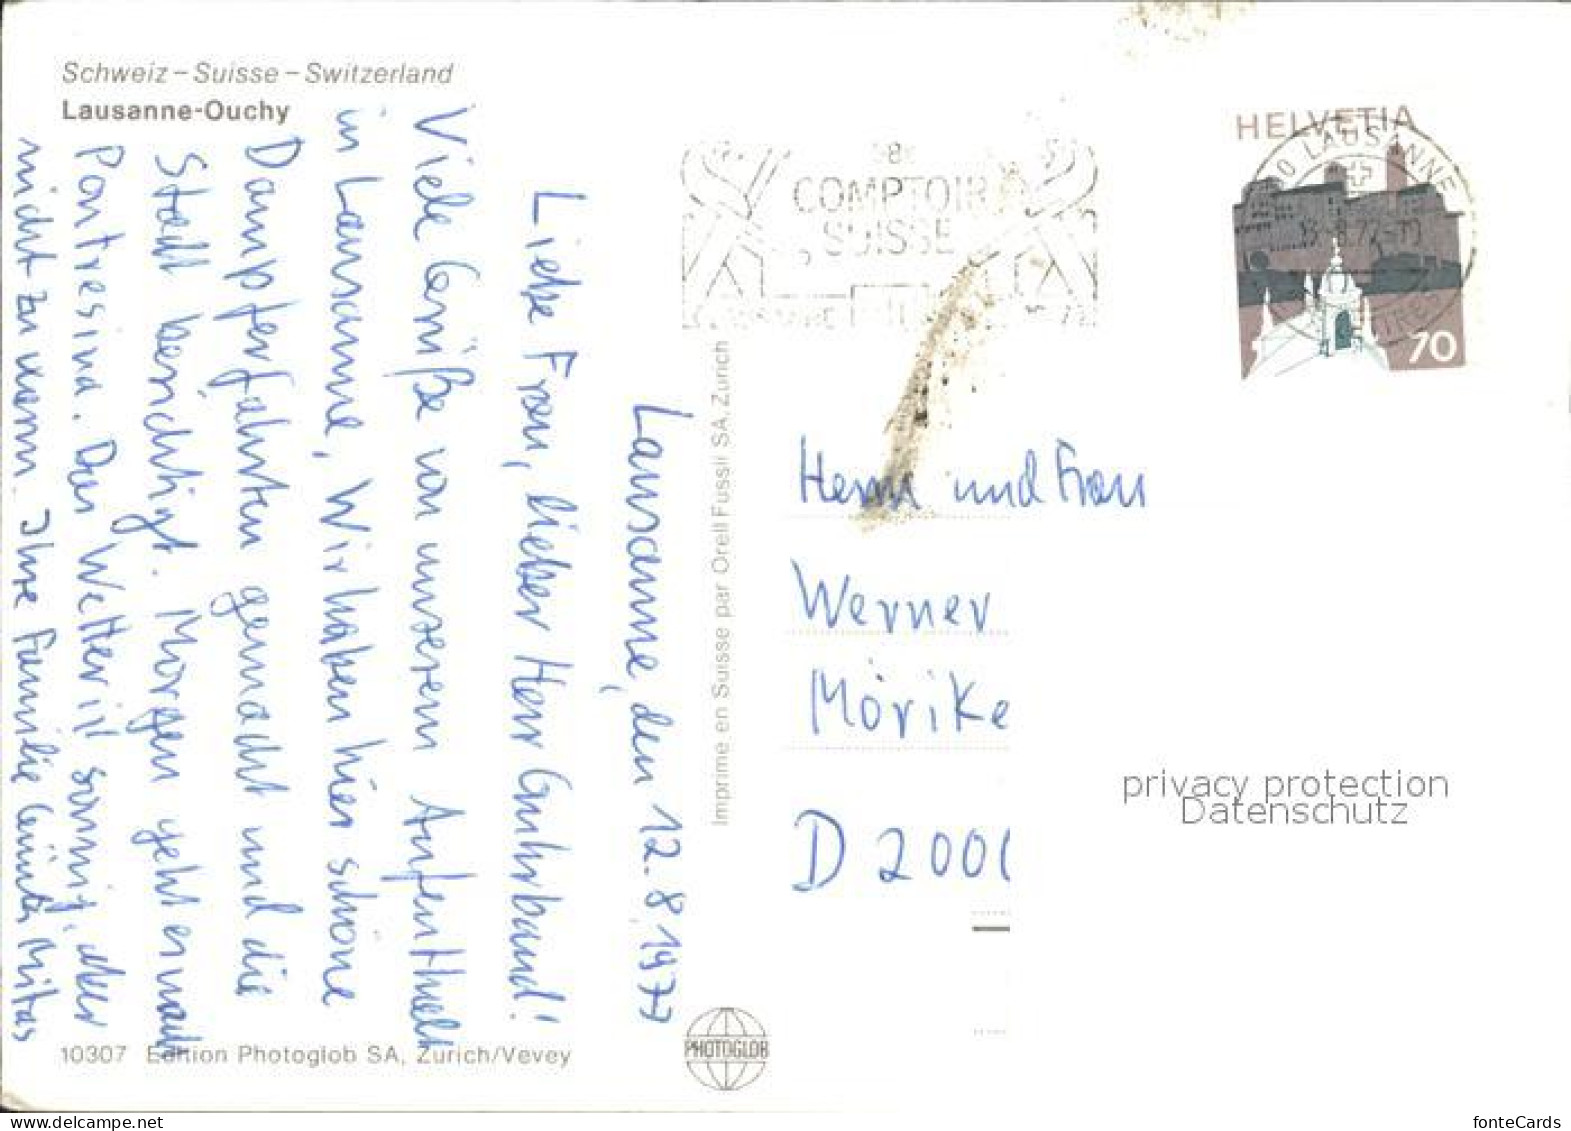 Schweiz – Suisse – Switzerland
Lausanne-Ouchy
Lausanne, den 12.8.1977
Liebe Frau, lieber Herr Guhrbaud!
Viele Grüße von unserem Aufenthalt
in Lausanne, Wir haben hier schöne
Dampferfahrten gemacht und die
Stadt besichtigt. Morgen geht es nach
Pontresina. Das Wetter ist sonnig, aber
nicht zu warm. Ihre Familie Günter Mitas
10307 Edition Photoglob SA, Zürich/Vevey
Imprimé en Suisse par Orell Füssli SA, Zürich
PHOTOGLOB
COMPTOIR
SUISSE
LAUSANNE
HELVETIA
LAUSANNE
70
Herrn und Frau
Werner
Mörike
D 2000
privacy protection
Datenschutz
www.delcampe.net
fonteCards